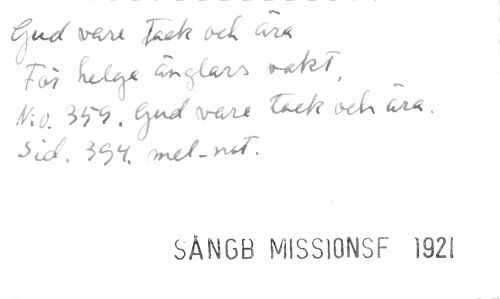 Gud vare tack och ära
För helga änglars vakt,
N:o. 359. Gud vare tack och ära.
Sid. 394. mel-not.
SÅNGB MISSIONSF 1921